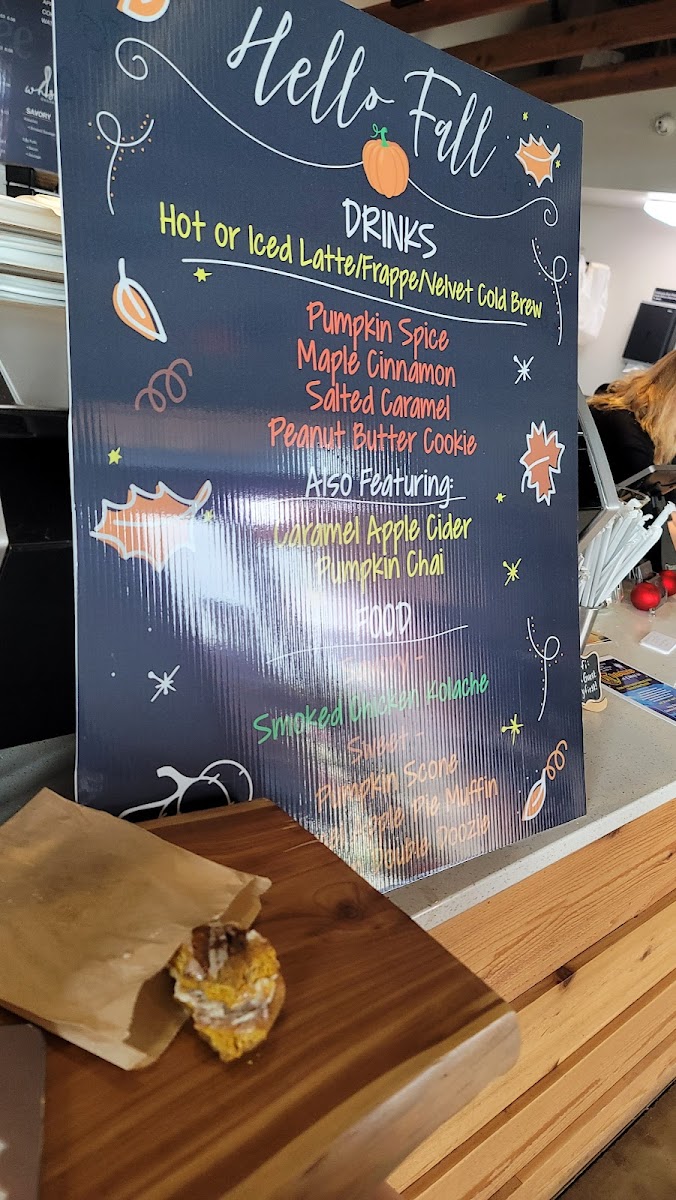 Hello Fall
DRINKS
Hot or Iced Latte/Frappe/Velvet Cold Brew
Pumpkin Spice
Maple Cinnamon
Salted Caramel
Peanut Butter Cookie
Also Featuring:
Caramel Apple Cider
Pumpkin Chai
FOOD
Smoked Chicken Kolache
Sweet -
Pumpkin Scone
Apple Pie Muffin
Double Doozie
SAVORY